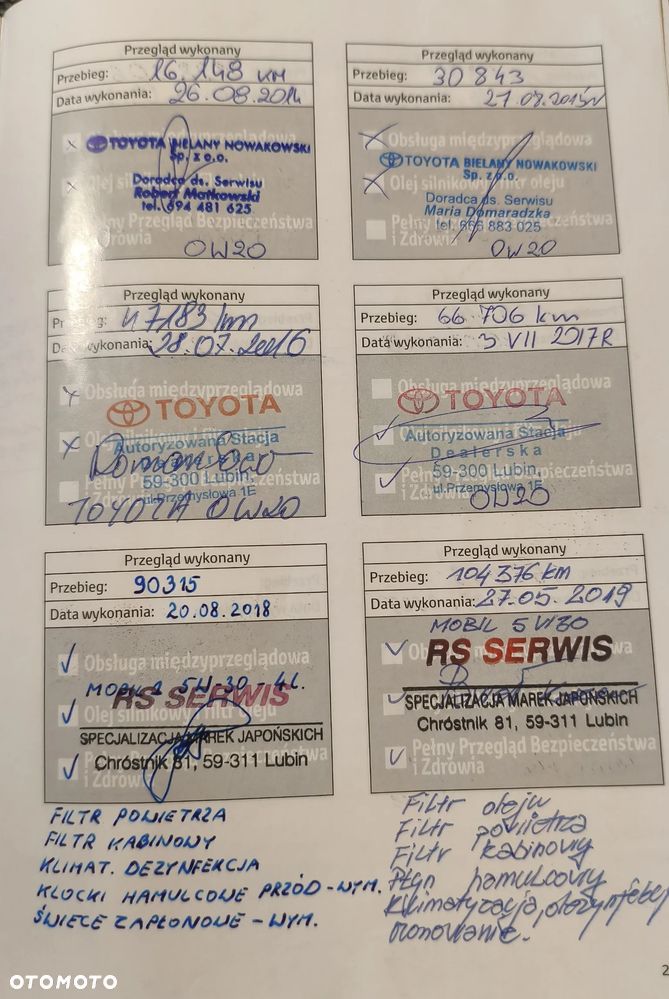 Przegląd wykonany
Przebieg: 16.148 km
Data wykonania: 26.08.2014
Obsługa międzyprzeglądowa
TOYOTA BIELANY NOWAKOWSKI
Sp. z o.o.
Olej silnikowy filtr oleju
Doradca ds. Serwisu
Robert Matkowski
tel. 694 481 625
Pełny Przegląd Bezpieczeństwa
i Zdrowia
0W20
Przegląd wykonany
Przebieg: 30 843
Data wykonania: 21.08.2015r
Obsługa międzyprzeglądowa
TOYOTA BIELANY NOWAKOWSKI
Sp. z o.o.
Olej silnikowy filtr oleju
Doradca ds. Serwisu
Maria Domaradzka
tel. 883 025
Pełny Przegląd Bezpieczeństwa
i Zdrowia
0W20
Przegląd wykonany
Przebieg: 47183 km
Data wykonania: 28.07.2016
Obsługa międzyprzeglądowa
TOYOTA
Autoryzowana Stacja
Dealerska
59-300 Lubin,
Pełny Przegląd Bezpieczeństwa
i Zdrowia
ul.Przemysłowa 1E
TOYOTA 0W20
Przegląd wykonany
Przebieg: 66 706 km
Data wykonania: 3 VII 2017R
Obsługa międzyprzeglądowa
TOYOTA
Autoryzowana Stacja
Dealerska
59-300 Lubin,
Pełny Przegląd Bezpieczeństwa
i Zdrowia
ul.Przemysłowa 1E
0W20
Przegląd wykonany
Przebieg: 90315
Data wykonania: 20.08.2018
Obsługa międzyprzeglądowa
MOBIL 5W-30 - 4L.
RS SERWIS
Olej silnikowy filtr oleju
SPECJALIZACJA MAREK JAPOŃSKICH
Chróstnik 81, 59-311 Lubin
Pełny Przegląd Bezpieczeństwa
i Zdrowia
FILTR POWIETRZA
FILTR KABINOWY
KLIMAT. DEZYNFEKCJA
KLOCKI HAMULCOWE PRZÓD-WYM.
ŚWIECE ZAPŁONOWE - WYM.
Przegląd wykonany
Przebieg: 104376 km
Data wykonania: 27.05.2019
MOBIL 5W30
Obsługa międzyprzeglądowa
RS SERWIS
SPECJALIZACJA MAREK JAPOŃSKICH
Chróstnik 81, 59-311 Lubin
Pełny Przegląd Bezpieczeństwa
i Zdrowia
Filtr oleju
Filtr powietrza
Filtr kabinowy
Płyn hamulcowy
Klimatyzacja,
ozonowanie.
2
OTOMOTO